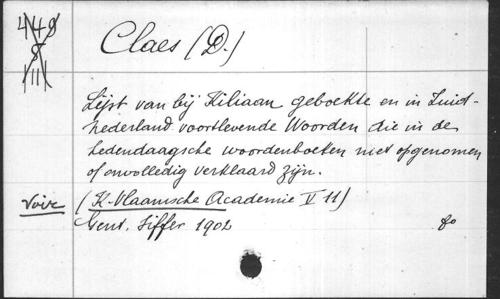 Claes (D.)
Lijst van bij Kiliaan geboekte en in Zuid-
nederland voortlevende Woorden die in de
hedendaagsche woordenboeken niet opgenomen
of onvolledig verklaard zijn.
Voir (K. Vlaamsche Academie V 11)
Gent, Siffer 1902 8o